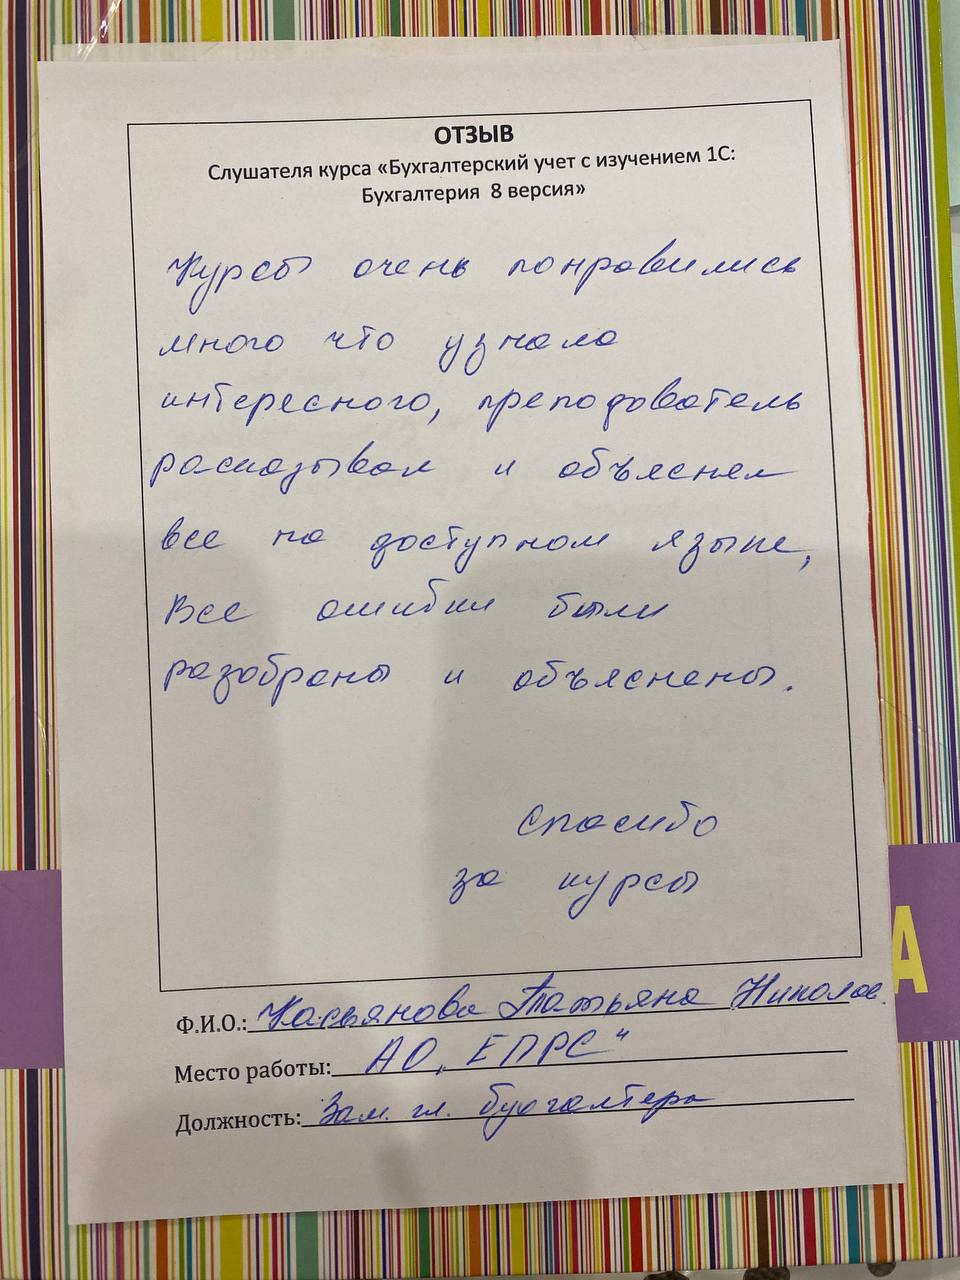 ОТЗЫВ
Слушателя курса «Бухгалтерский учет с изучением 1С:
Бухгалтерия 8 версия»
Курсы очень понравились
много что узнала
интересного, преподователь
расказывал и объяснял
все на доступном языке,
Все ошибки были
разобраны и объяснены.
Спасибо
за курсы
Ф.И.О.: Касьянова Татьяна Николае.
Место работы: АО „ЕПРС"
Должность: Зам. гл. бухгалтера
А